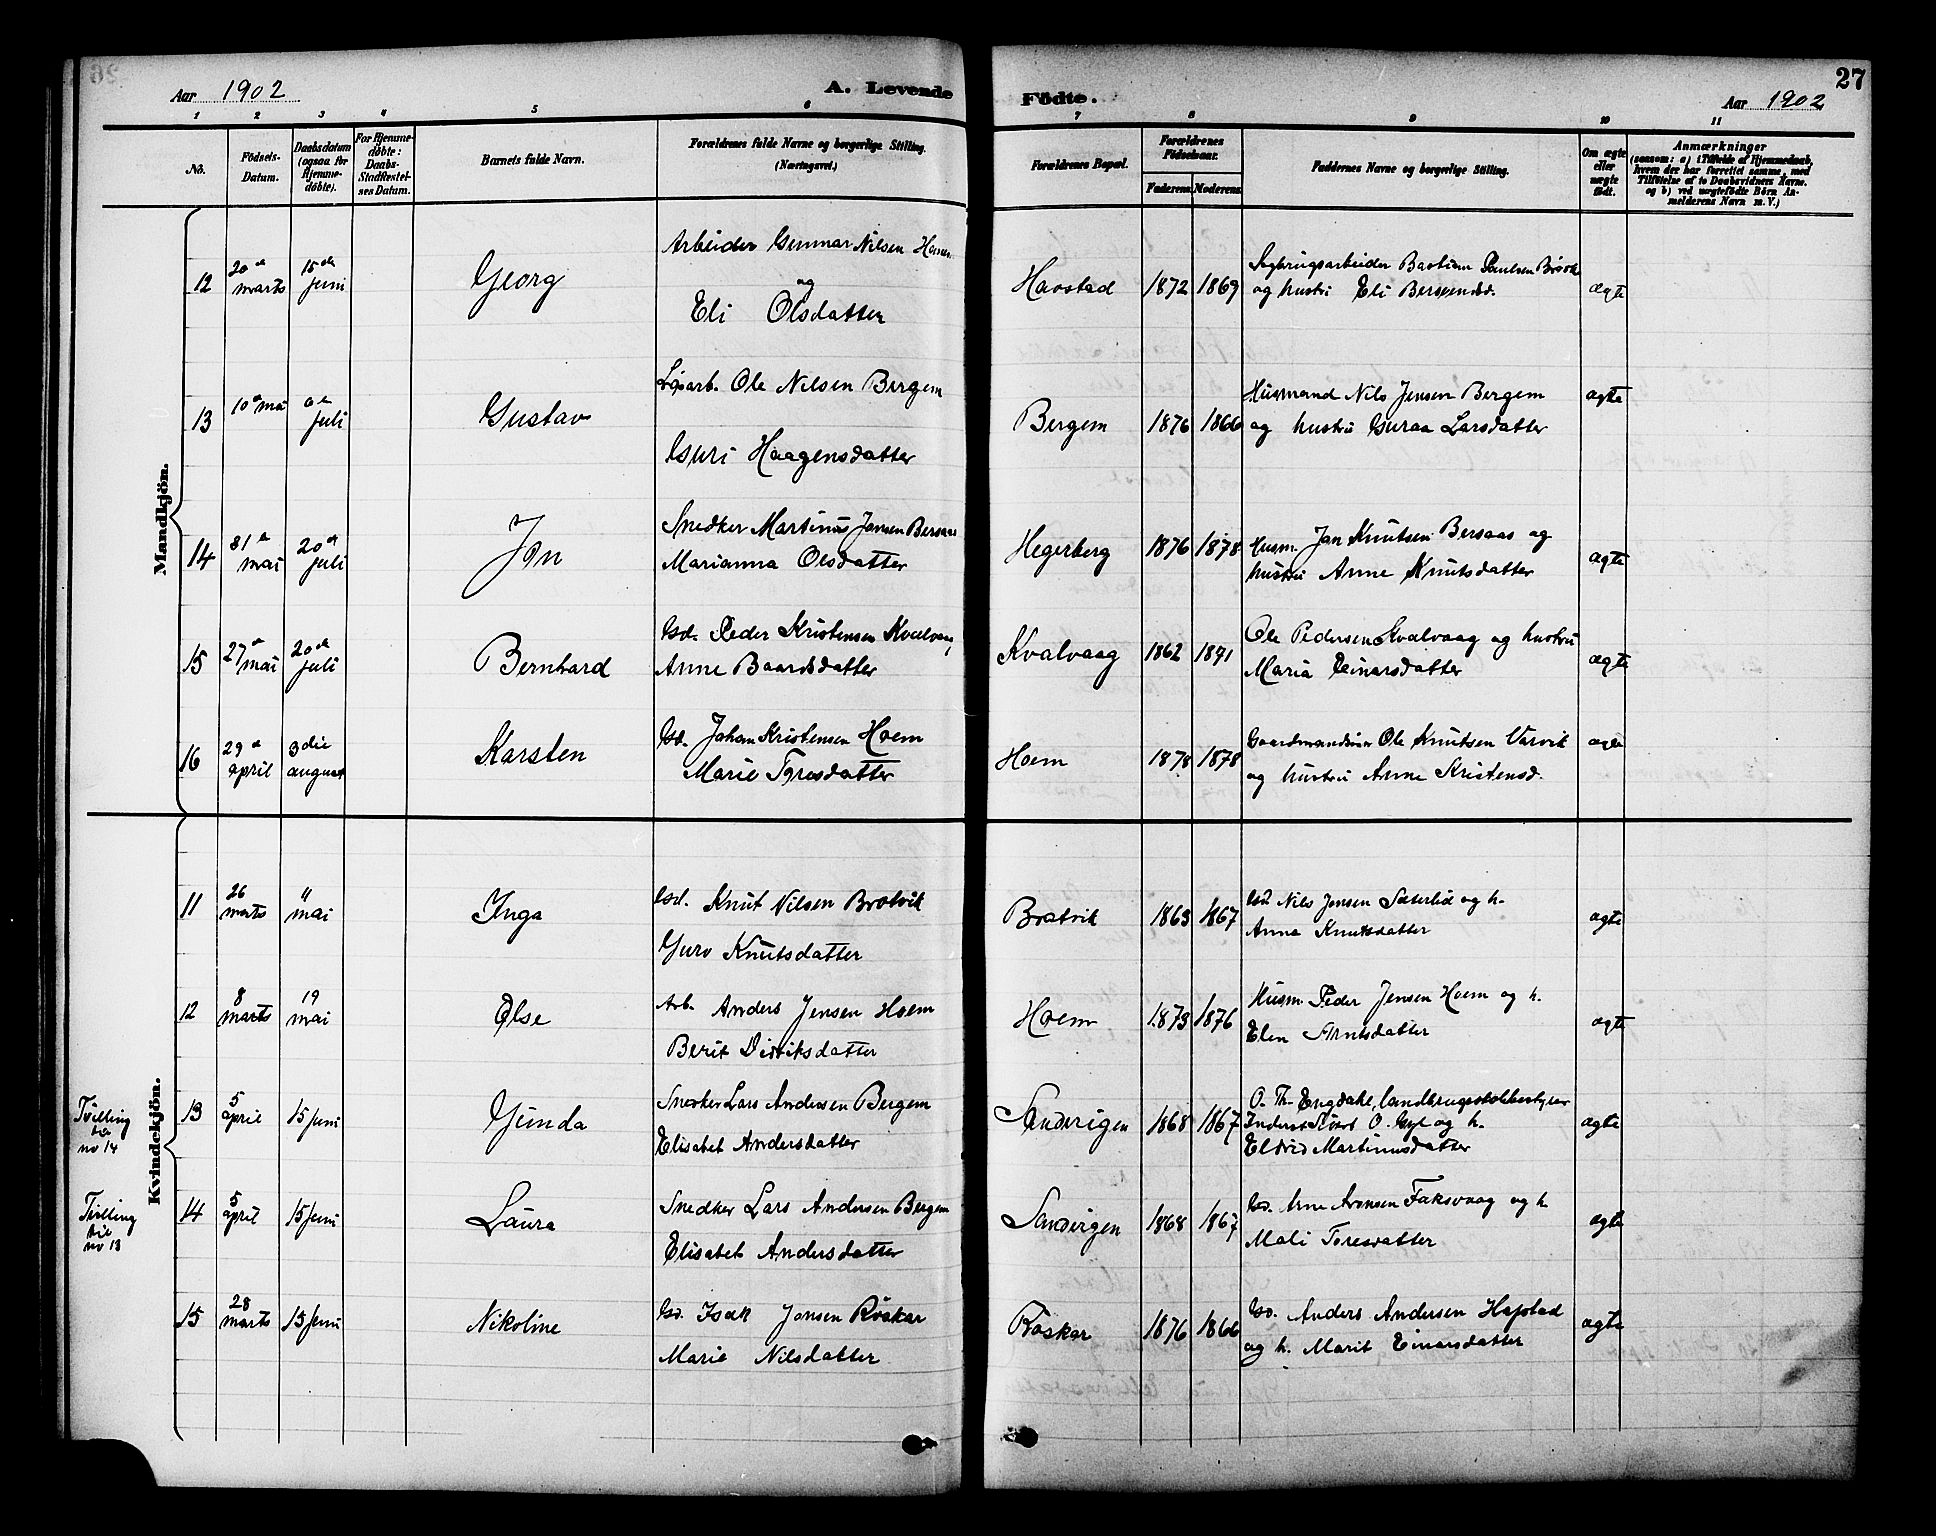 26
Aar 1902
A. Levende
Födte.
Aar 1902
27
1 2 3 4 5 6 7 8 9 10 11
No.
Födsels-Datum.
Daabsdatum (ogsaa for Hjemmedöbte).
For Hjemmedöbte: Daabs-Stadfæstelses Datum.
Barnets fulde Navn.
Forældrenes fulde Navne og borgerlige Stilling. (Næringsvei.)
Forældrenes Bopæl.
Forældrenes Födselsaar.
Faderens. Moderens.
Faddernes Navne og borgerlige Stilling.
Om ægte eller uægte födt.
Anmærkninger
(saasom: a) i Tilfælde af Hjemmedaab, hvem der har forrettet samme, med Tilföielse af to Daabsvidners Navne. og b) ved uægtefödte Börn Anmelderens Navn m. V.)
Mandkjön.
12 20de marts 15de juni Georg
Arbeider Gunnar Nilsen Hoem
og
Eli Olsdatter
Havstad 1872 1869
Sagbrugsarbeider Bastian Paulsen
og hustru Eli Bersvendsd.
ægte
13 10de mai 6te juli Gustav
Løsarb. Ole Nilsen Bergem
Guri Haagensdatter
Bergem 1876 1866
Husmand Nils Jensen Bergem
og hustru Guraa Larsdatter
ægte
14 31te mai 20de juli Jon
Snedker Martinus Jansen Bersaas
Marianna Olsdatter
Hegerberg 1876 1878
Husm. Jan Knutsen Bersaas og
hustru Anne Knutsdatter
ægte
15 27de mai 20de juli Bernhard
Gd. Peder Kristensen Kvalvaag,
Anne Baardsdatter
Kvalvaag 1862 1871
Ole Pedersen Kvalvaag og hustru
Maria Einarsdatter
ægte
16 29de april 3die august Karsten
Gd. Johan Kristensen Hoem
Marie Toresdatter
Hoem 1878 1878
Gaardmandssøn Ole Knutsen Varvik
og hustru Anne Kristensd.
ægte
Kvindekjön.
11 26 marts " mai Inga
Gd. Knut Nilsen Bratvik
Guro Knutsdatter
Bratvik 1863 1867
Gd Nils Jensen Sæterlid og h.
Anna Knutsdatter
ægte
12 8 marts 19 mai Else
Arb. Anders Jensen Hoem
Berit Didriksdatter
Hoem 1873 1876
Husm. Peder Jensen Hoem og h.
Elen Arntsdatter
ægte
Tvilling til no 14
13 5 april 15 juni Gunda
Snedker Lars Andersen Bergem
Elisabet Andersdatter
Sandvigen 1868 1867
O. Th. Engdahl, landbrugsskolebestyrer
O. Gyl og h.
Eldrid Martinusdatter
ægte
Tvilling til no 13
14 5 april 15 juni Laura
Snedker Lars Andersen Bergem
Elisabet Andersdatter
Sandvigen 1868 1867
Gd. Arne Arensen Faksvaag og h.
Mali Toresdatter
ægte
15 28 marts 15 juni Nikoline
Gd. Isak Jonsen Röskar
Marie Nilsdatter
Röskar 1876 1866
Gd. Anders Andersen Hafstad
og h. Marit Einarsdatter
ægte